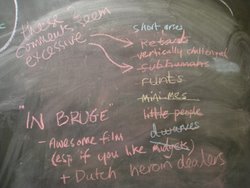 these
comments seem
excessive
short arses
Retards
vertically challenged
subhumans
runts
mini-mes
little people
dwarves
"IN BRUGE"
- Awesome film
(esp if you like midgets)
+ Dutch heroin dealers